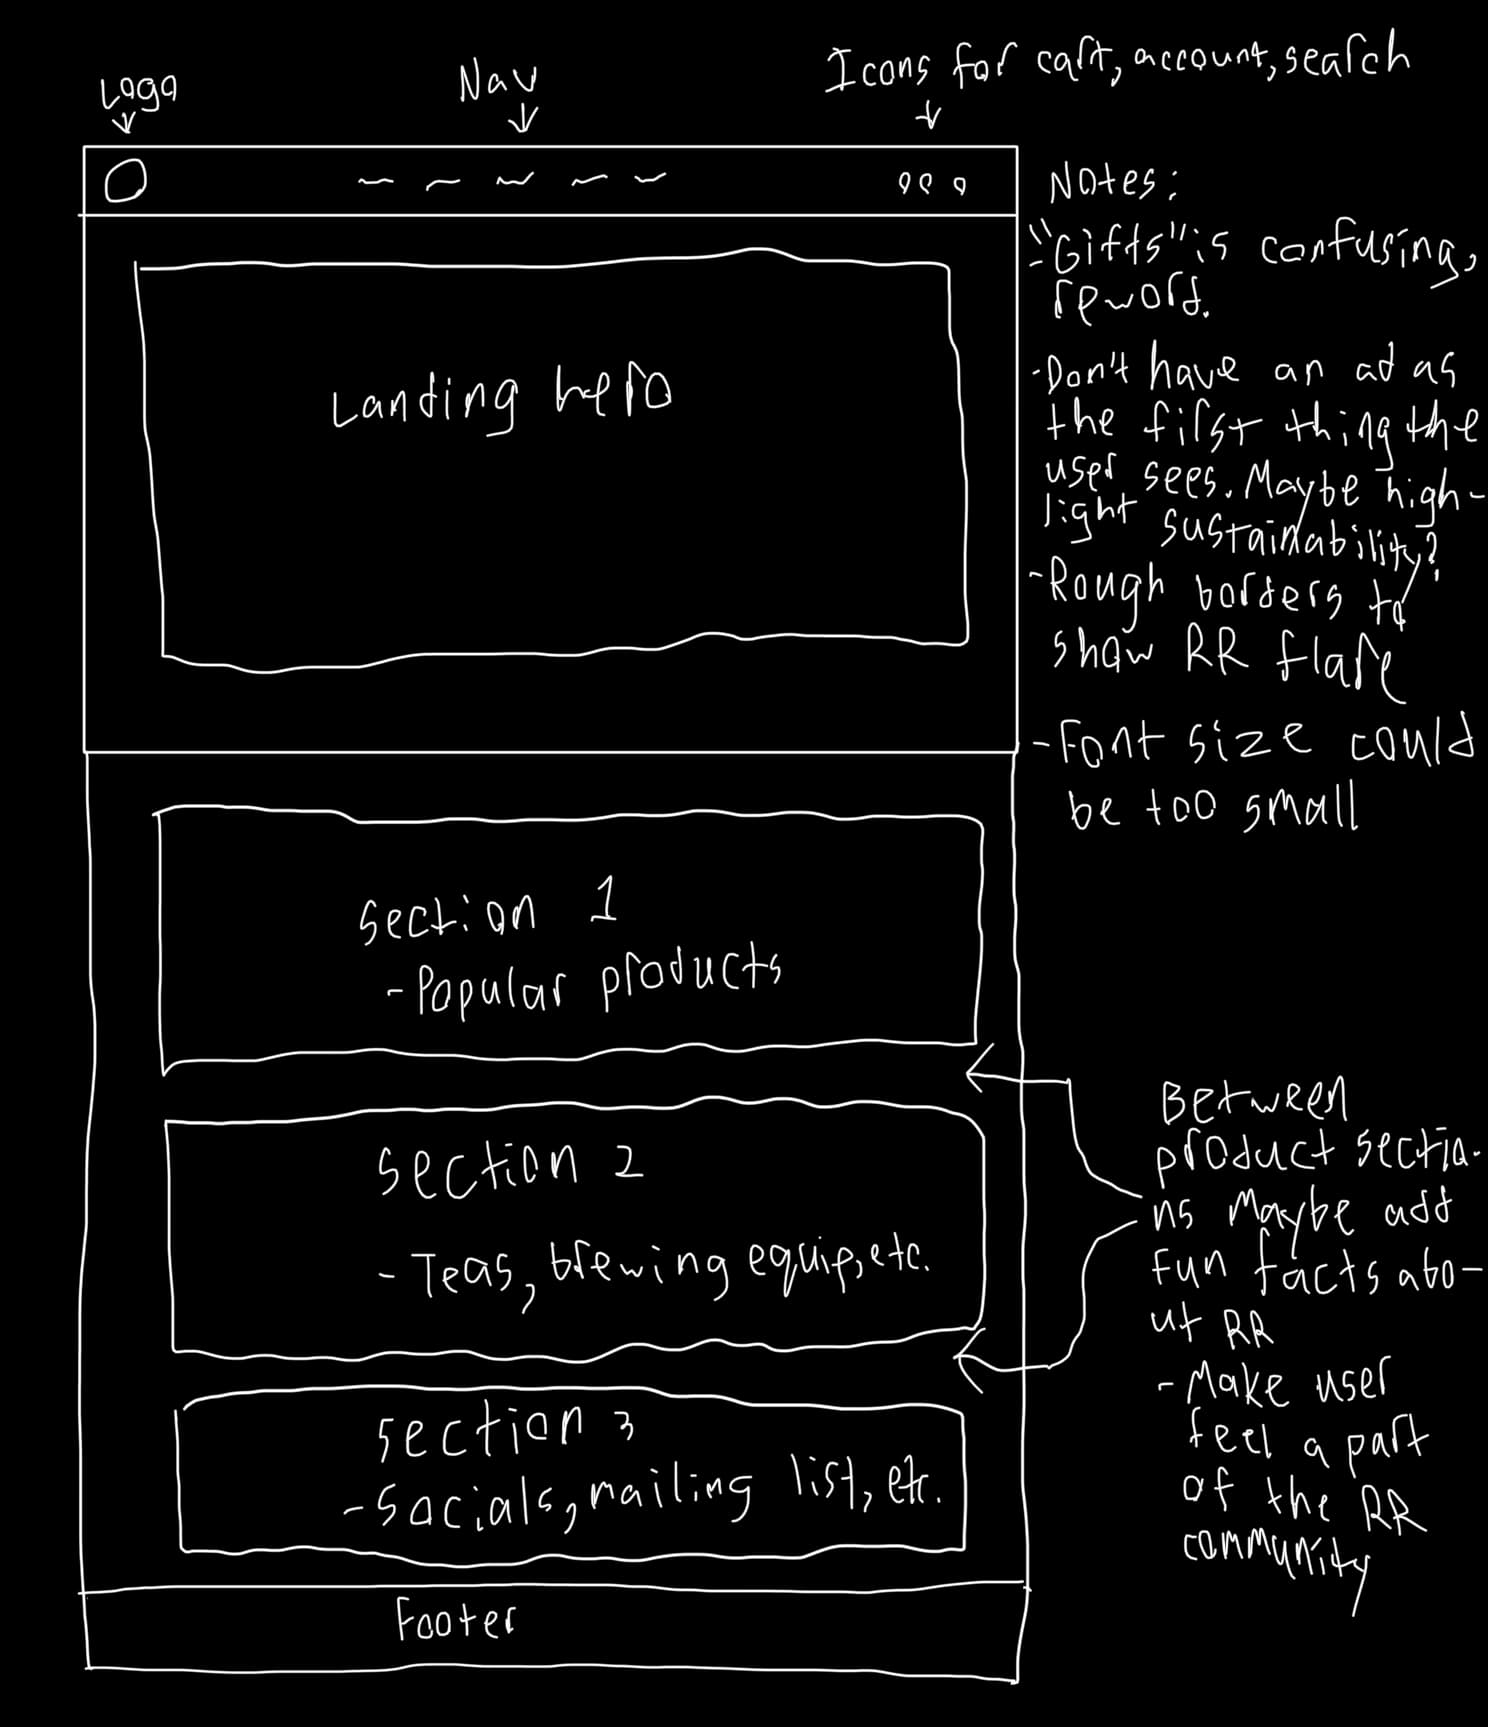 Logo
Nav
Icons for cart, account, search
Notes:
- "Gifts" is confusing,
reword.
- Don't have an ad as
the first thing the
user sees. Maybe high-
light sustainability?
- Rough borders to
show RR flare
- Font size could
be too small
Landing hero
Section 1
- Popular products
Section 2
- Teas, brewing equip, etc.
Section 3
- Socials, mailing list, etc.
Between
product sectio-
ns Maybe add
Fun facts abo-
ut RR
- Make user
feel a part
of the RR
community
Footer